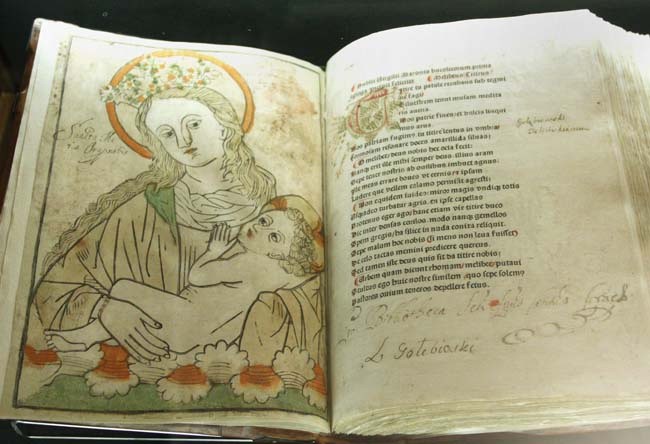 Publii Virgilii Maronis bucolicorum prima
Melibeus Titirus.
Titire tu patule recubans sub tegmi
ne fagi
Siluestrem tenui musam medita
ris auena.
Nos patrie fines et dulcia linqui
mus arua
Nos patriam fugimus tu titire lentus in umbra
Formosam resonare doces amarillida siluas
O melibee deus nobis hec ocia fecit:
Namqꝫ erit ille mihi semper deus: illius aram
Sepe tener nostris ab ouilibus imbuet agnus:
Ille meas errare boues vt cernis et ipsum
Ludere que vellem calamo permisit agresti:
Non equidem inuideo: miror magis vndiqꝫ totis
Usqueadeo turbatur agris. en ipse capellas
Protenus eger ago: hanc etiam vix titire duco
Hic inter densas corilos. modo namqꝫ gemellos
Spem gregis ha silice in nuda conixa reliquit.
Sepe malum hoc nobis (si mens non leua fuisset)
De celo tactas memini predicere quercus.
Sed tamen iste deus quis sit da titire nobis:
Urbem quam dicunt rhomam melibee putaui
Stultus ego huic nostre similem, quo sepe solemꝰ
Pastores ouium teneros depellere fetus.
Bibliotheca
L Gołębiowski